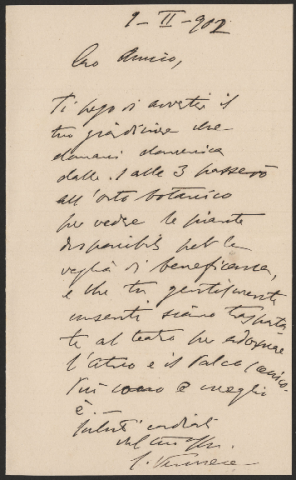 1-II-902
Caro Amico,
Ti prego di avvertire il
tuo giardiniere che
domani domenica
dalle 1 alle 3 passerò
all'orto botanico
per vedere le piante
disponibili per la
veglia di beneficenza,
e che tu gentilmente
consenti siano trasporta-
te al teatro per adornare
l'atrio e il palco scenico.
Più sono e meglio
è.—
Saluti cordiali
dal tuo aff.